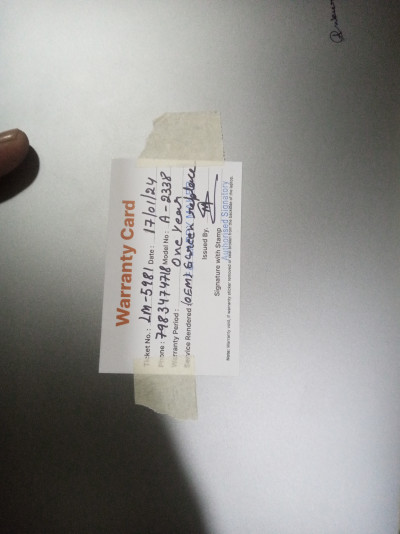 Warranty Card
Ticket No.: LM-5981 Date: 17/01/24
Phone: 7983474718 Model No: A-2338
Warranty Period: One Year
Service Rendered (OEM) Screen replace
Issued By.
Signature with Stamp Authorised Signatory
Note: Warranty void, if warranty sticker removed